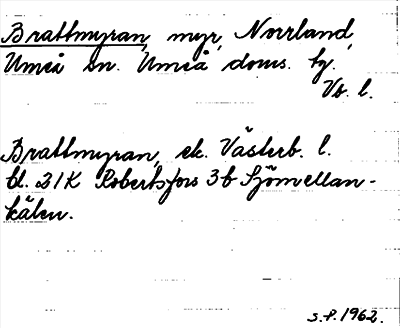 Brattmyran, myr, Norrland,
Umeå sn. Umeå doms. tg.
Vb. l.
Brattmyran, ek. Västerb. l.
bl. 21K Robertsfors 3b Sjömellan-
kälen.
s.f. 1962.